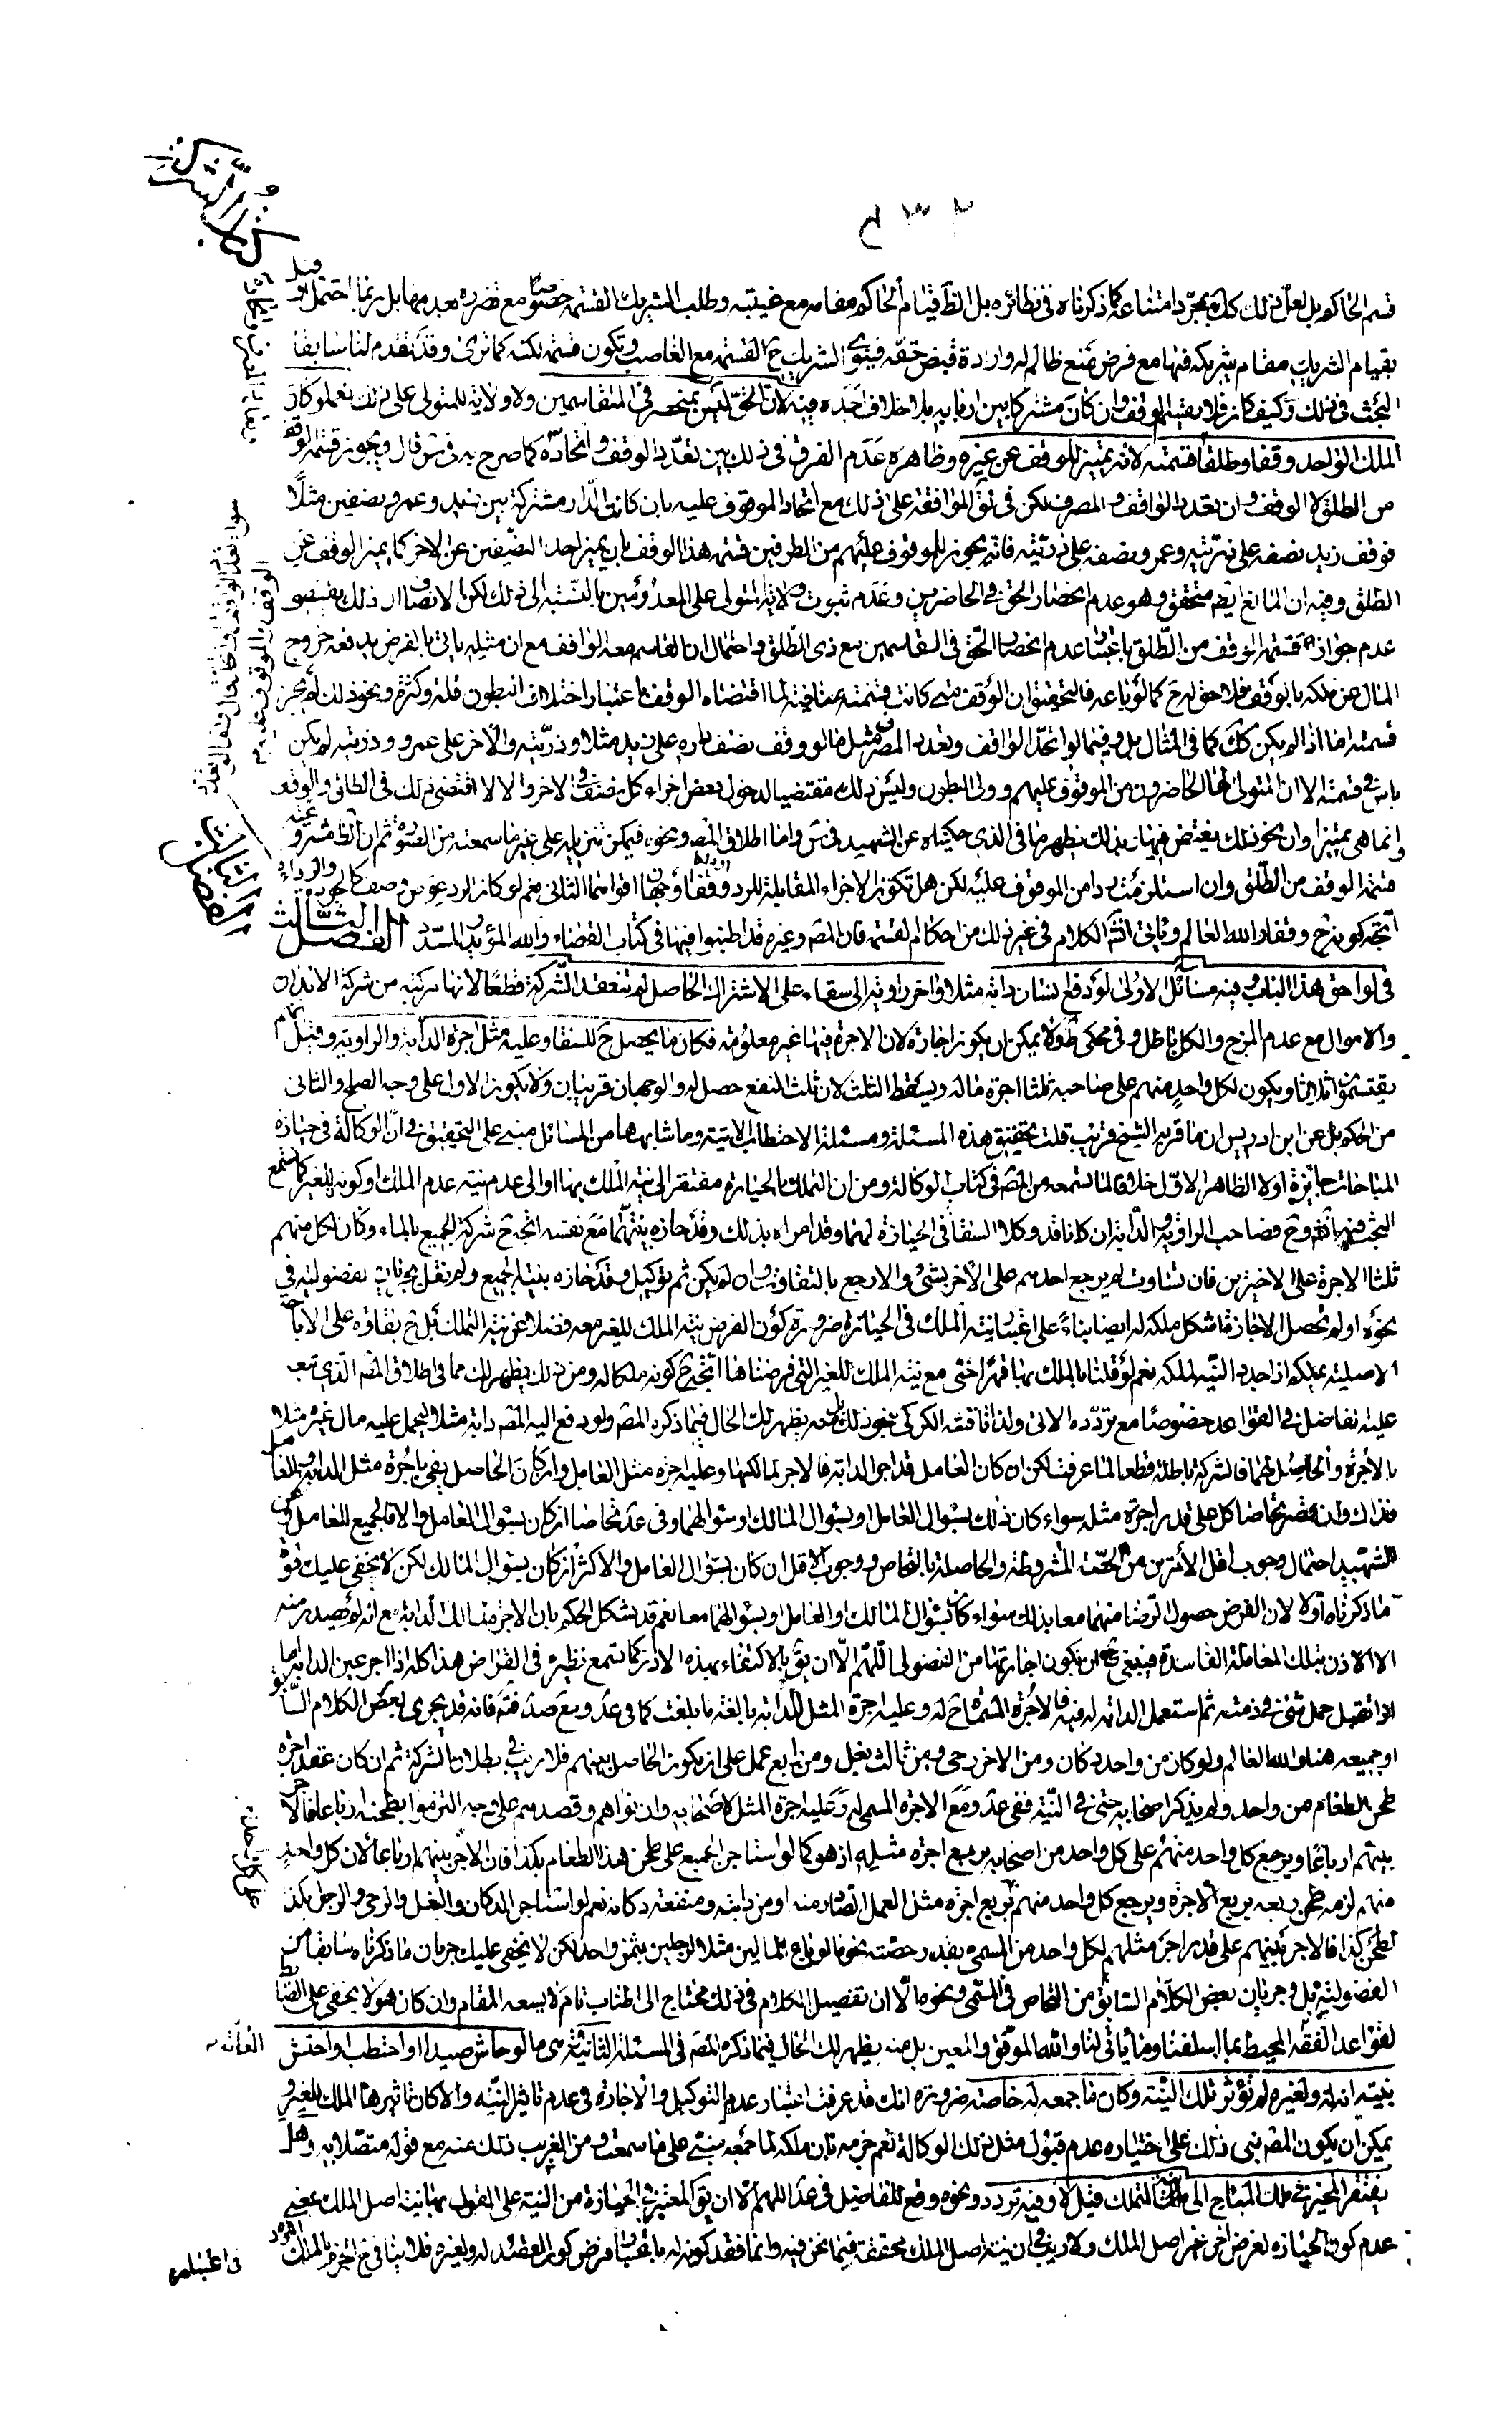 كتاب الشركة
٤٣٢
قسم الحاكم بل لعل ذلك كك بمجرد امتناعه كما ذكرناه في نظائره بل الظ قيام الحاكم مقامه مع غيبته وطلب الشريك القسمة خصوصا مع تضرره بعدمها بل ربما احتمل او قيل
بقيام الشريك مقام شريكه فيها مع فرض تمنع ظالم له وارادة قبض حقه فينوى الشريك ح القسمة مع الغاصب وتكون قسمة لكنه كما ترى وقد تقدم لنا سابقا
البحث في ذلك وكيف كان فلا يقسم الوقف وان كان مشتركا بين اربابه بلا خلاف اجده فيه لان الحق ليس بمنحصر في المتقاسمين ولا ولاية للمتولى على ذلك نعم لو كان
الملك الواحد وقفا وطلقا صح قسمته لانه تمييز للوقف عن غيره وظاهره عدم الفرق في ذلك بين تعدد الوقف واتحاده كما صرح به في س قال ويجوز قسمة الوقف
من الطلق لا الوقف وان تعدد الواقف والمصرف لكن في ئق الموافقة على ذلك مع اتحاد الموقوف عليه بان كانت الدار مشتركة بين زيد وعمرو نصفين مثلا
فوقف زيد نصفه على ذريته وعمرو نصفه على ذريته فانه يجوز للموقوف عليهم من الطرفين قسمة هذا الوقف بان يميز احد النصفين عن الاخر كما يميز الوقف عن
الطلق وفيه ان المانع ايضا متحقق وهو عدم انحصار الحق في الحاضرين وعدم ثبوت ولاية المتولى على المعدومين بالنسبة الى ذلك لكن الانصاف ان ذلك يقتضى
عدم جواز قسمة الوقف من الطلق باعتبار عدم انحصار الحق في المتقاسمين مع ذى الطلق واحتمال ان المقاسم معه الواقف مع ان مثله ياتى بالفرض يدفعه خروج
المال عن ملكه بالوقف فلا حق له ح كما لو باعه فالتحقيق ان الوقف متى كانت قسمته منافية لما اقتضاه الوقف باعتبار اختلاف البطون قلة وكثرة ونحو ذلك لم يجز
قسمته اما اذا لم يكن كك كما في المثال بل وفيما لو اتحد الواقف وتعدد المصرف مثل ما لو وقف نصف داره على زيد مثلا وذريته والاخر على عمرو وذريته لم يكن
باس في قسمته الا ان المتولى لها الحاضرون من الموقوف عليهم وولى البطون وليس ذلك مقتضيا لدخول بعض اجزاء كل نصف في الاخر والا لاقتضى ذلك في الطلق والوقف
وانما هى تمييز وان نحو ذلك يغتفر فيها بذلك يظهر ما في الذى حكيناه عن الشهيد في س واما اطلاق المص ونحوه فيمكن تنزيله على غير ما سمعته من القسمة ثم ان الظ مشروعية
قسمة الوقف من الطلق وان استلزمت ردا من الموقوف عليه لكن هل تكون الاجزاء المقابلة للرد وقفا وجهان اقواهما الثانى نعم لو كان الرد عوض وصف كالجودة والرداءة
اتجه كونه ح وقفا والله العالم وياتى انشم الكلام في غير ذلك من احكام القسمة فان المص وغيره قد اطنبوا فيها في كتاب القضاء والله المؤيد المسدد الفصل الثالث
في لواحق هذا الباب وفيه مسائل الاولى لو دفع انسان دابة مثلا واخر راوية الى سقاء على الاشتراك في الحاصل لم تنعقد الشركة قطعا لانها مركبة من شركة الابدان
والاموال مع عدم المزج والكل باطل وفي محكى ط ولا يمكن ان يكون اجارة لان الاجرة فيها غير معلومة فكان ما يحصل ح للسقاء وعليه مثل اجرة الدابة والراوية وقيل
يقتسمون اثلاثا ويكون لكل واحد منهم على صاحبه ثلثا اجرة ماله ويسقط الثلث لان ثلث النفع حصل له والوجهان قريبان ولا يكون الاول على وجه الصلح والثانى
من الحكم بل عن ابن ادريس ان ما قربه الشيخ قريب قلت تحقيق هذه المسئلة ومسئلة الاحتطاب الاتية وما شابهها من المسائل مبنى على التحقيق في ان الوكالة في حيازة
المباحات جائزة اولا الظاهر الاول خلافا لما تسمعه من المص في كتاب الوكالة ومن ان التملك بالحيازة مفتقر الى نية الملك بها او الى عدم نية عدم الملك او كونه للغير كما تسمع
البحث فيه انشم وح فصاحب الراوية والدابة ان كانا قد وكلا السقا في الحيازة لهما وقد امراه بذلك وقد حازه بنيتهما مع نفسه اتجه ح شركة الجميع بالماء وكان لكل منهم
ثلثا الاجرة على الاخيرين فان تساوت لم يرجع احدهم على الاخر بشئ والا رجع بالتفاوت وان لم يكن ثم توكيل وقد حازه بنية الجميع ولم نقل بجريان الفضولية في
نحوه او لم تحصل الاجازة اشكل ملكه له ايضا بناء على اعتبار نية الملك في الحيازة ضرورة كون الفرض نية الملك للغير معه فضلا عن نية التملك بل ح بقاؤه على الاباحة
الاصلية يملكه اذا جدد النية لملكه نعم لو قلنا بالملك بها قهرا حتى مع نية الملك للغير التى فرضناها اتجه ح كونه ملكا له ومن ذلك يظهر لك مما في اطلاق المص الذى تبعه
عليه الفاضل في القواعد خصوصا مع تردده الاتى ولذا ناقشه الكركى بنحو ذلك بل منه يظهر لك الحال فيما ذكره المص ولو دفع اليه المص دابة مثلا ليحمل عليه مال غيره مثلا
بالاجرة والحاصل لهما فالشركة باطلة قطعا لما عرفت لكن ان كان العامل قد اجر الدابة فالاجر لمالكها وعليه اجرة مثل العامل وان كان الحاصل يفى باجرة مثل الدابة والعامل
فذاك وان قصر تحاصا كل على قدر اجرة مثله سواء كان ذلك بسؤال العامل او بسؤال المالك او سؤالهما وفي عد تحاصا ان كان بسؤال العامل والا فالجميع للعامل وعن
الشهيد احتمال وجوب اقل الامرين من الحصة المشروطة والحاصلة بالتحاص ووجوب الاقل ان كان بسؤال العامل والاكثر ان كان بسؤال المالك لكن لا يخفى عليك قوة
ما ذكرناه اولا لان الفرض حصول الرضا منهما معا بذلك سواء كان بسؤال المالك او العامل او بسؤالهما معا نعم قد يشكل الحكم بان الاجرة لمالك الدابة مع انه لم يصدر منه
الا الاذن بتلك المعاملة الفاسدة فينبغى ح ان يكون اجارتها من الفضولى اللهم الا ان يق بالاكتفاء بهذه الاذن كما تسمع نظيره في القراض هذا كله اذا اجر عين الدابة اما
اذا تقبل حمل شئ في ذمته ثم استعمل الدابة له فيه فالاجرة المسماة ح له وعليه اجرة المثل للدابة بالغة ما بلغت كما في عد ومع صد فتم فانه قد يجرى بعض الكلام السابق
او جميعه هنا والله العالم ولو كان من واحد دكان ومن الاخر رحى ومن ثالث بغل ومن رابع عمل على ان يكون الحاصل بينهم فلا ريب في بطلان الشركة ثم ان كان عقد اجرة
طحن الطعام من واحد ولم يذكر اصحابه حتى في النية ففى عد ومع الاجرة المسمى له وعليه اجرة المثل لاصحابه وان نواهم وقصدهم على وجه التزموا بطحنه ارباعا فالاجر
بينهم ارباعا ويرجع كل واحد منهم على كل واحد من اصحابه بربع اجرة مثله اذ هو كما لو استاجر الجميع على طحن هذا الطعام بكذا فان الاجر بينهم ارباعا لان كل واحد
منهم لزمه طحن ربعه بربع الاجرة ويرجع كل واحد منهم بربع اجرة مثل العمل الصادر منه او من دابته ومنفعة دكانه نعم لو استاجر الدكان والبغل والرحى والرجل بكذا
لطحن كذا فالاجرة بينهم على قدر اجر مثلهم لكل واحد من المسمى بقدر حصته نحو ما لو باع بمالين مثلا لرجلين بثمن واحد لكن لا يخفى عليك جريان ما ذكرناه سابقا من
الفضولية بل وجريان بعض الكلام السابق من التحاص في المسمى ونحوه الا ان تفصيل الكلام في ذلك محتاج الى اطناب تام لا يسعه المقام وان كان هو لا يخفى على الضابط
لقواعد الفقه المحيط بما اسلفنا وما ياتى لنا والله الموفق والمعين بل منه يظهر لك الحال فيما ذكره المص في المسئلة الثانية وهى ما لو حاش صيدا او احتطب او احتش
بنية انه له ولغيره لم تؤثر تلك النية وكان ما جمعه له خاصة ضرورة انك قد عرفت اعتبار عدم التوكيل والاجازة في عدم تاثير النية والا كان تاثيرها الملك للغير و
يمكن ان يكون المص بنى ذلك على اختياره عدم قبول مثل ذلك الوكالة نعم جزمه بان ملكه لما جمعه يبنى على ما سمعت ومن الغريب ذلك منه مع قوله متصلا به وهل
يفتقر المحيز في ملك المباح الى نية التملك قيل لا وفيه تردد ونحوه وقع للفاضل في عد اللهم الا ان يق المعتبر في الحيازة من النية على القول بها نية اصل الملك بمعنى
عدم كون الحيازة لغرض اخر غير اصل الملك ولا ريب في ان نية اصل الملك محققة فيما نحن فيه وانما فقد كونه له باعتبار فرض كون القصد له ولغيره فلا ينافى ح الجزم بالملك التردد
في اعتبار
الفصل الثالث
الثانية